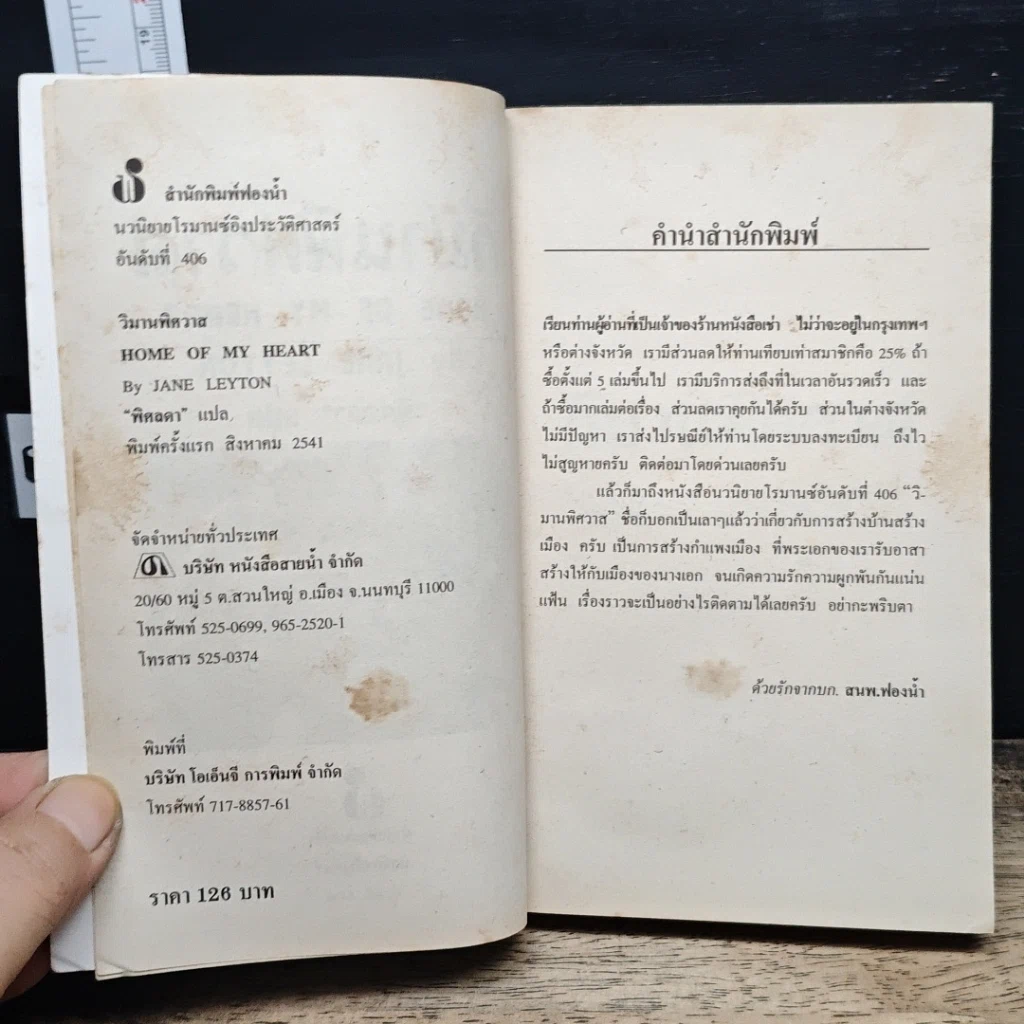 19
สำนักพิมพ์ฟองน้ำ
นวนิยายโรมานซ์อิงประวัติศาสตร์
อันดับที่ 406
วิมานพิศวาส
HOME OF MY HEART
By JANE LEYTON
"พิศลดา" แปล
พิมพ์ครั้งแรก สิงหาคม 2541
จัดจำหน่ายทั่วประเทศ
บริษัท หนังสือสายน้ำ จำกัด
20/60 หมู่ 5 ต.สวนใหญ่ อ.เมือง จ.นนทบุรี 11000
โทรศัพท์ 525-0699, 965-2520-1
โทรสาร 525-0374
พิมพ์ที่
บริษัท โอเอ็นจี การพิมพ์ จำกัด
โทรศัพท์ 717-8857-61
ราคา 126 บาท
คำนำสำนักพิมพ์
เรียนท่านผู้อ่านที่เป็นเจ้าของร้านหนังสือเช่า ไม่ว่าจะอยู่ในกรุงเทพฯ
หรือต่างจังหวัด เรามีส่วนลดให้ท่านเทียบเท่าสมาชิกคือ 25% ถ้า
ซื้อตั้งแต่ 5 เล่มขึ้นไป เรามีบริการส่งถึงที่ในเวลาอันรวดเร็ว และ
ถ้าซื้อมากเล่มต่อเรื่อง ส่วนลดเราคุยกันได้ครับ ส่วนในต่างจังหวัด
ไม่มีปัญหา เราส่งไปรษณีย์ให้ท่านโดยระบบลงทะเบียน ถึงไว
ไม่สูญหายครับ ติดต่อมาโดยด่วนเลยครับ
แล้วก็มาถึงหนังสือนวนิยายโรมานซ์อันดับที่ 406 "วิ-
มานพิศวาส" ชื่อก็บอกเป็นเลาๆแล้วว่าเกี่ยวกับการสร้างบ้านสร้าง
เมือง ครับ เป็นการสร้างกำแพงเมือง ที่พระเอกของเรารับอาสา
สร้างให้กับเมืองของนางเอก จนเกิดความรักความผูกพันกันแน่น
แฟ้น เรื่องราวจะเป็นอย่างไรติดตามได้เลยครับ อย่ากะพริบตา
ด้วยรักจากบก. สนพ.ฟองน้ำ